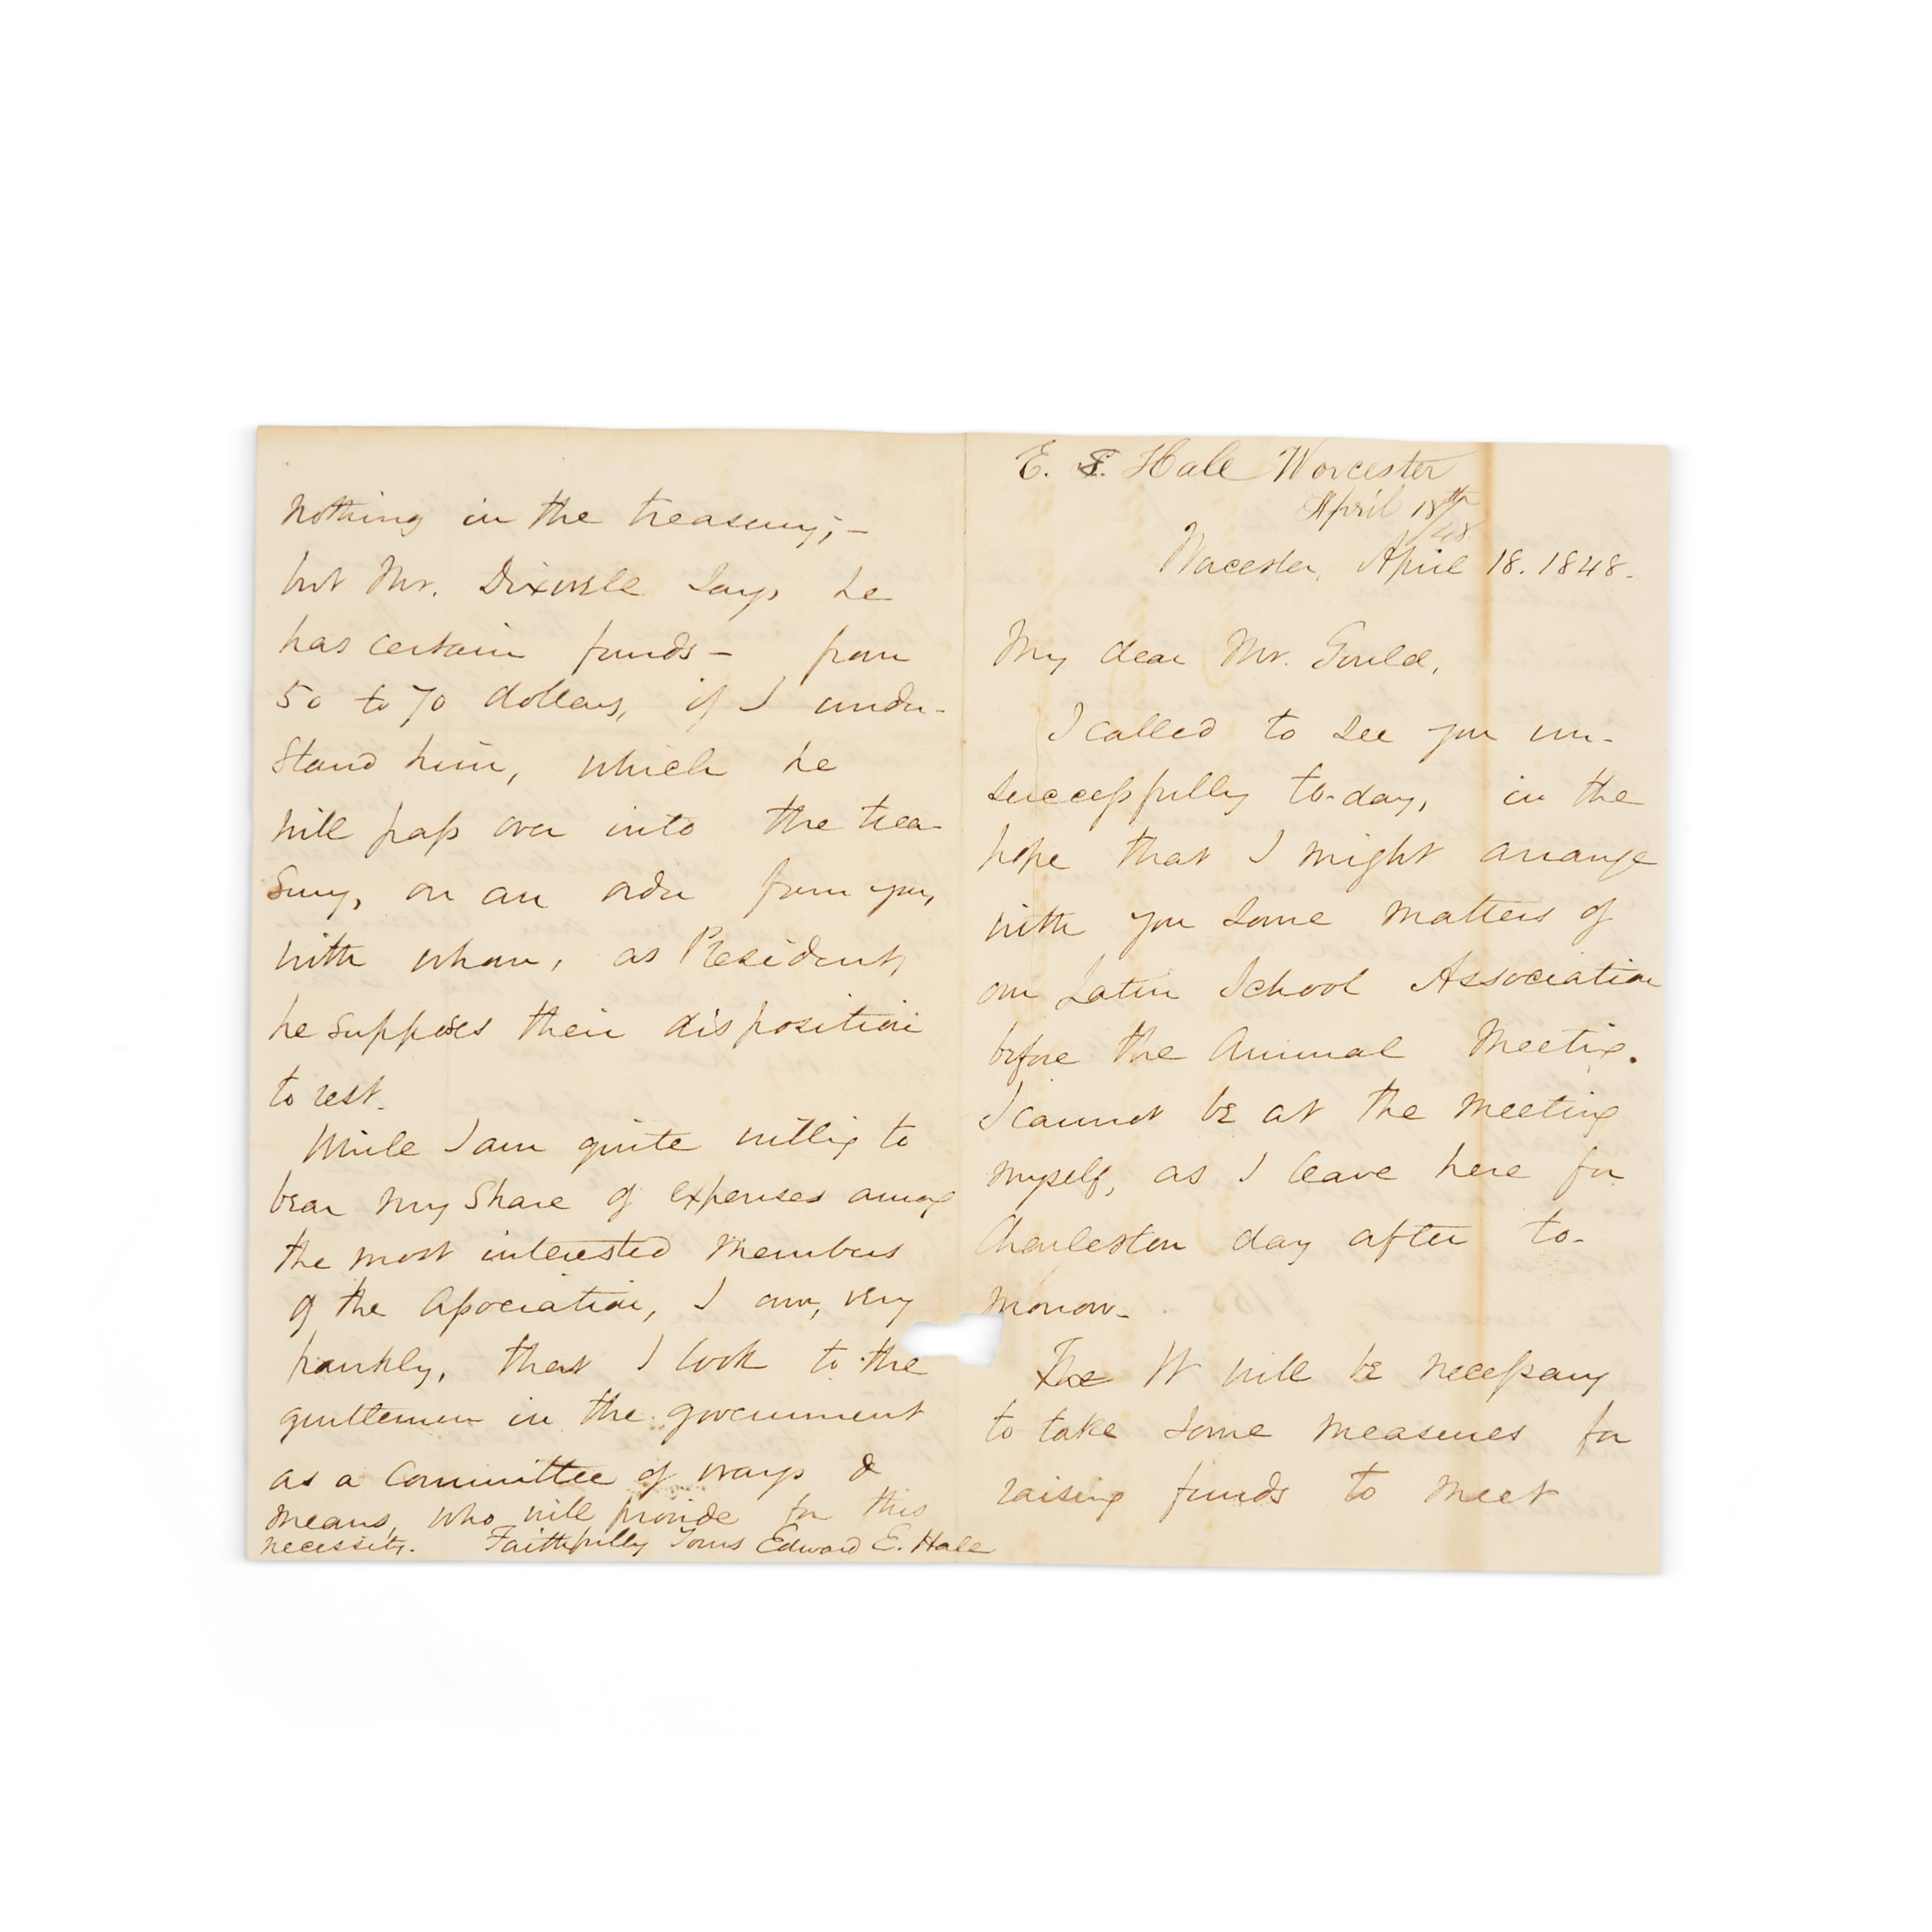 E. E. Hale Worcester
April 18th
/48
Worcester, April 18. 1848.
My dear Mr. Gould,
I called to see you un-
successfully to-day, in the
hope that I might arrange
with you some matters of
our Latin School Association
before the Annual Meeting.
I cannot be at the meeting
myself, as I leave here for
Charleston day after to-
morrow.
The It will be necessary
to take some measures for
raising funds to meet
nothing in the treasury;–
but Mr. Dixwell says he
has certain funds – from
50 to 70 dollars, if I under-
stand him, which he
will pass over into the trea-
sury, on an order from you,
with whom, as President,
he supposes their disposition
to rest.
While I am quite willing to
bear my share of expenses among
the most interested members
of the Association, I own, very
frankly, that I look to the
gentlemen in the government
as a Committee of ways &
means, who will provide for this
necessity. Faithfully Yours Edward E. Hale